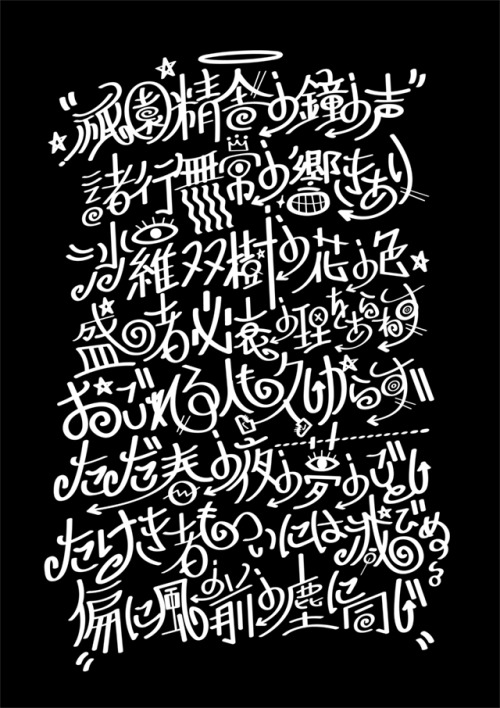 “祇園精舎の鐘の声”
諸行無常の響きあり
沙羅双樹の花の色
盛の者必衰の理をあらわす
おごれる人も久しからず
ただ春の夜の夢のごとし
たけき者もついには滅びぬる
偏に風の前の塵に同じ”